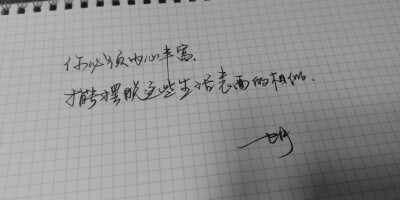 你必须内心丰富,
才能摆脱这些生活表面的相似.